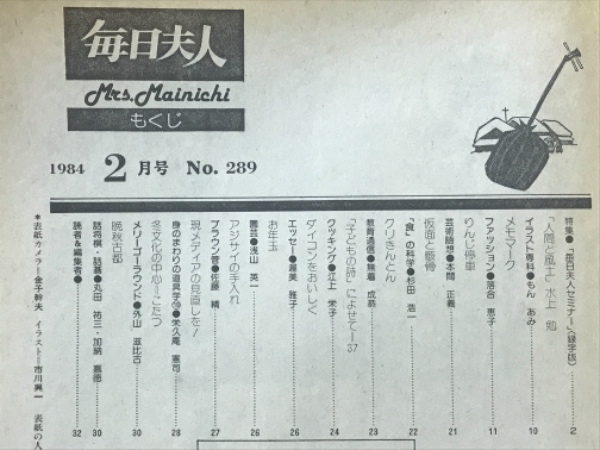 毎日夫人
Mrs. Mainichi
もくじ
1984 2月号 No. 289
特集●「毎日夫人セミナー」〈録字版〉
「人間と風土」水上 勉 2
イラスト専科●もん あみ 10
メモマーク
ファッション●落合 恵子 11
りんじ停車
芸術随想●本間 正義 21
仮面と骸骨
「食」の科学●杉田 浩一 22
クリきんとん
教育通信●無着 成恭 23
「子どもの詩」によせて―37
クッキング●江上 栄子 24
ダイコンをおいしく
エッセー●渥美 雅子 26
お年玉
園芸●浅山 英一 26
アジサイの手入れ
ブラウン管●佐藤 精 27
現メディアの見直しを!
身のまわりの道具学●栄久庵 憲司 28
冬文化の中心―こたつ
メリーゴーラウンド●外山 滋比古 30
晩秋古都
詰将棋・詰碁●丸田 祐三・加納 嘉徳 30
読者&編集者● 32
＊表紙カメラ―金子幹夫 イラスト―市川興一 表紙の人